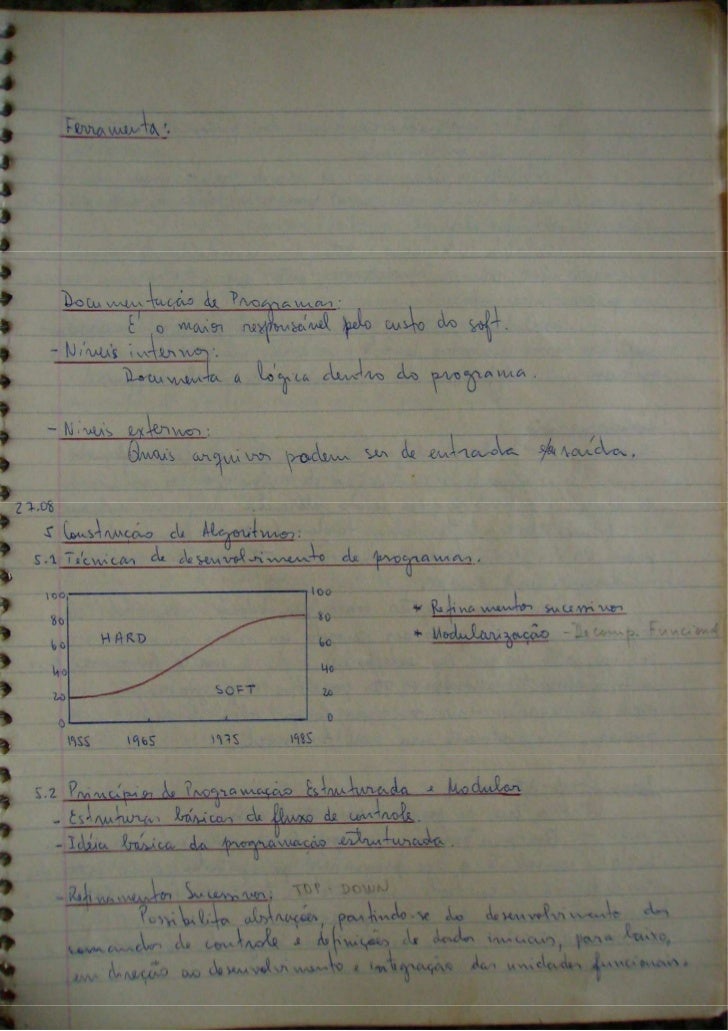 Ferramenta:
Documentação de Programas:
É o maior responsável pelo custo do soft.
- Níveis internos:
Documenta a lógica dentro do programa.
- Níveis externos:
Quais arquivos podem ser de entrada saída.
27.08
5 Construção de Algoritmos:
5.1 Técnicas de desenvolvimento de programas.
100 100
80 80
* Refinamentos sucessivos
HARD
60 60
* Modularização - Decomp. Funcional
40 40
20 SOFT 20
0 0
1955 1965 1975 1985
5.2 Princípios de Programação Estruturada e Modular
- Estruturas básicas de fluxo de controle.
- Idéia básica da programação estruturada.
- Refinamentos Sucessivos: TOP-DOWN
Possibilita abstrações, partindo-se do desenvolvimento dos
comandos de controle e definições de dados iniciais, para baixo,
em direção ao desenvolvimento e integração das unidades funcionais.